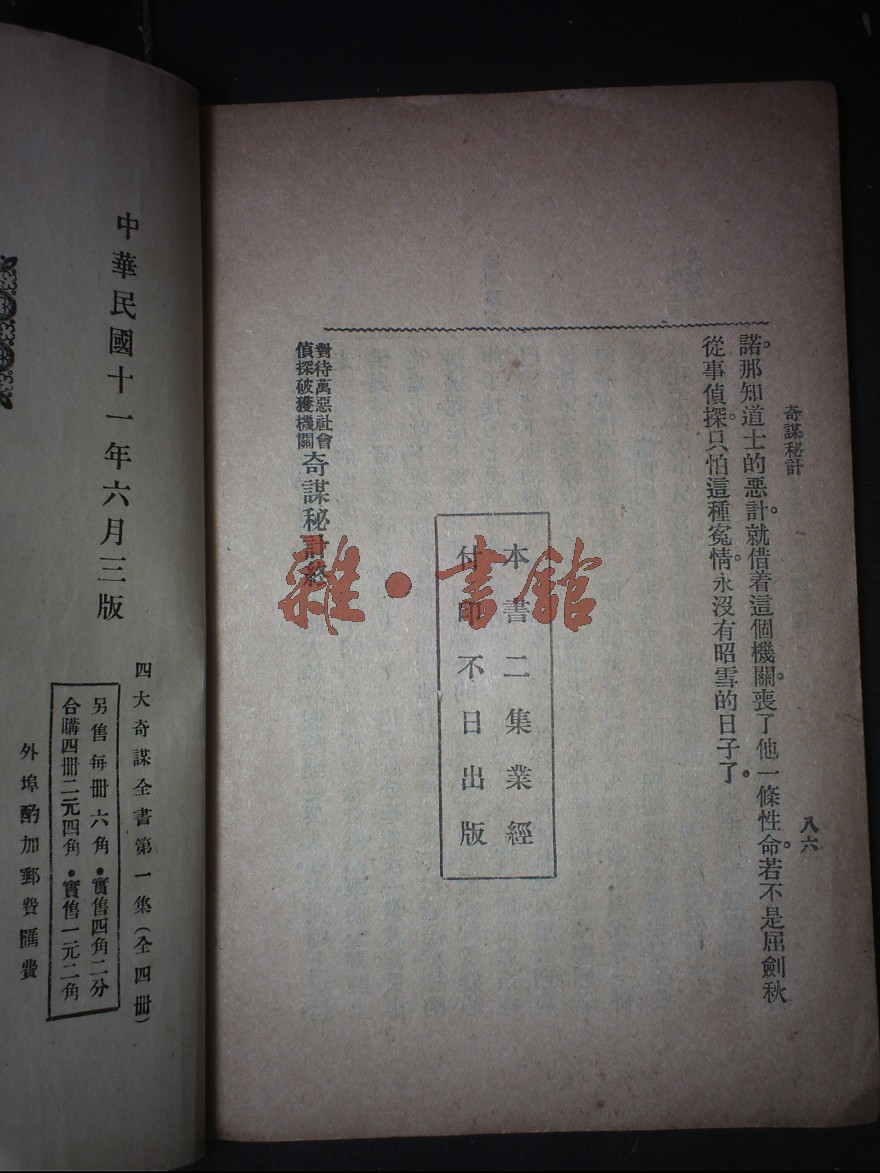 奇謀秘計
八六
諾。那知道士的惡計。就借着這個機關。喪了他一條性命。若不是屈劍秋
從事偵探。只怕這種冤情。永沒有昭雪的日子了。
本書二集業經
付印不日出版
對待萬惡社會
偵探破獲機關
奇謀秘計終
雜·書館
四大奇謀全書第一集(全四冊)
另售每冊六角•實售四角二分
合購四冊二元四角•實售一元二角
中華民國十一年六月三版
外埠酌加郵費匯費